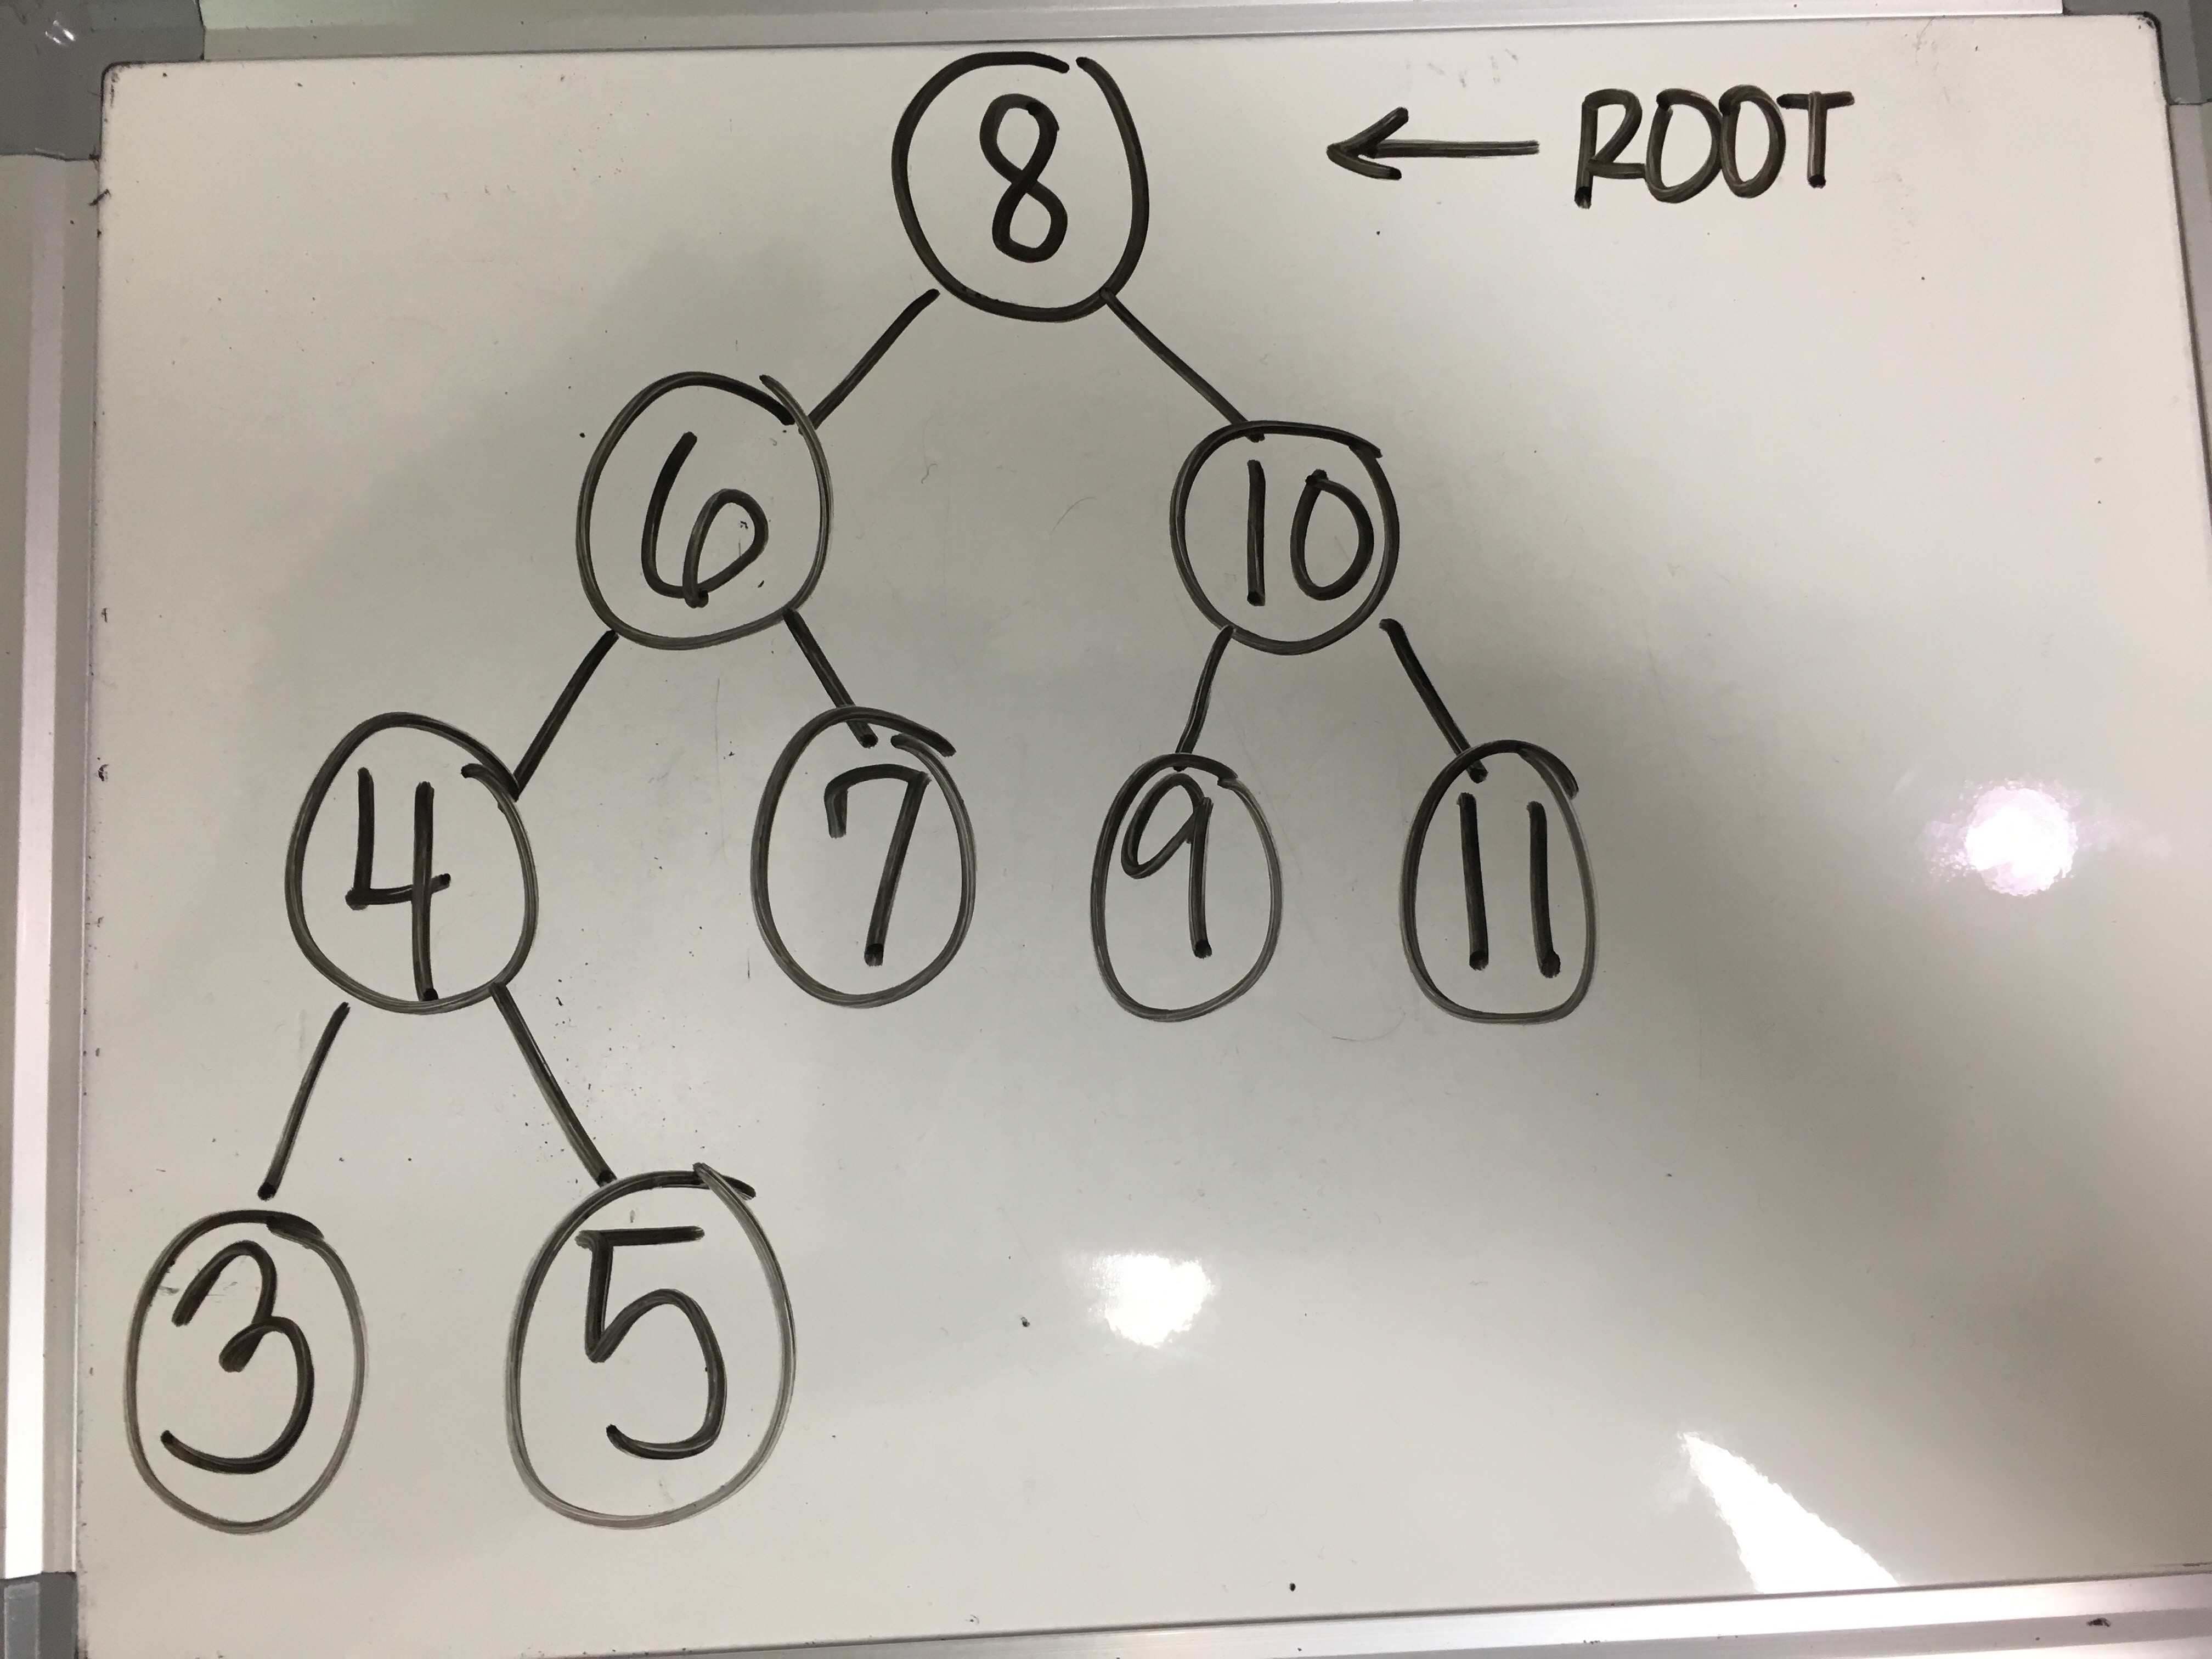 8 ← ROOT
6 10
4 7 9 11
3 5